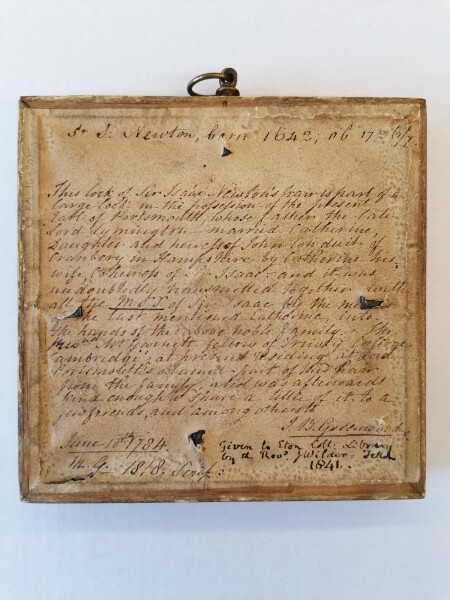 Sr I. Newton, born 1642, ob 17 26/7
This lock of Sir Isaac Newton's hair is part of a
large lock in the possession of the present
Earl of Portsmouth, whose father the late
Lord Lymington married Catherine,
Daughter and heiress of John Conduit of
Cranbery in Hampshire by Catherine his
wife of Sr Isaac - and it was
undoubtedly transmitted together with
all the M.S.S of Sir Isaac by the
the last mentioned Catherine into
the hands of the above noble family. The
Revnd Mr Garnett fellow of Trinity College
Cambridge, at present residing at Lord
Portsmouth's obtained part of this hair
from the family, and was afterwards
kind enough to spare a little of it to a
few friends, and among others to
J. B. Greenwood
June 10th 1784
1818,
Given to Eton Coll: Library
by the Revd. J Wilder: Fell
1841.